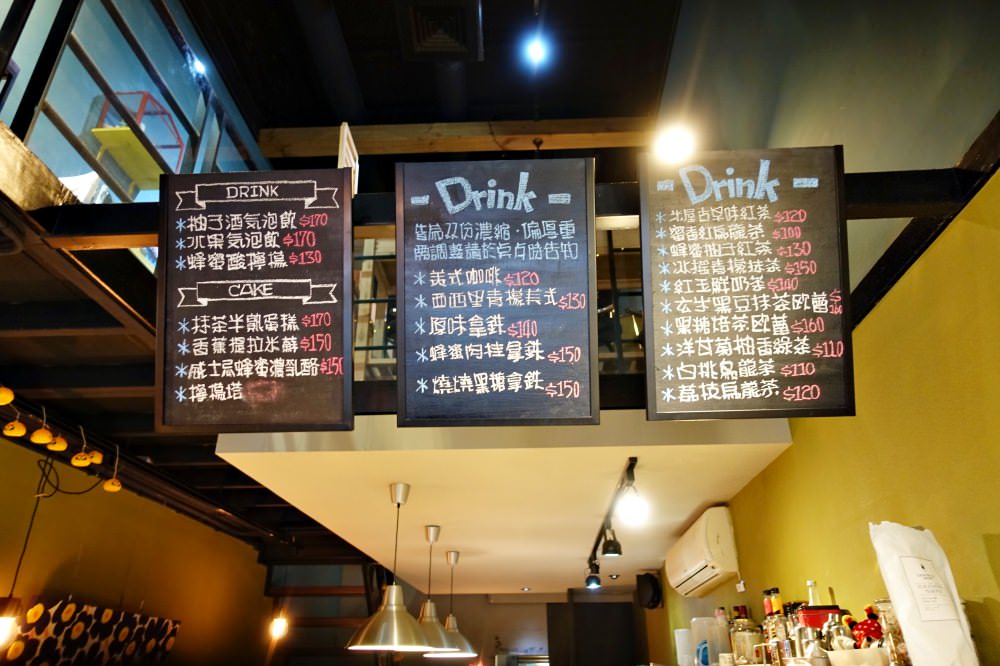 DRINK
*柚子酒気泡飲 $170
*水果気泡飲 $170
*蜂蜜酸檸檬 $130
CAKE
*抹茶半熟蛋糕 $170
*香蕉提拉米蘇 $150
*威士忌蜂蜜濃乳酪 $150
*檸檬塔
- Drink -
皆為双份濃縮·偏厚重
需調整請於点点時告知
*美式咖啡 $120
*西西里青檬美式 $130
*原味拿鉄 $140
*蜂蜜肉桂拿鉄 $150
*燒燒黑糖拿鉄 $150
- Drink -
*氷屋古早味紅茶 $120
*蜜香紅烏龍茶 $100
*蜂蜜柚子紅茶 $130
*氷搖青檬抹茶 $150
*紅玉鮮奶茶 $140
*玄生黑豆抹茶欧蕾 $160
*黑糖焙茶欧蕾 $160
*洋甘菊柚香綠茶 $110
*白桃烏龍茶 $110
*荔枝烏龍茶 $120